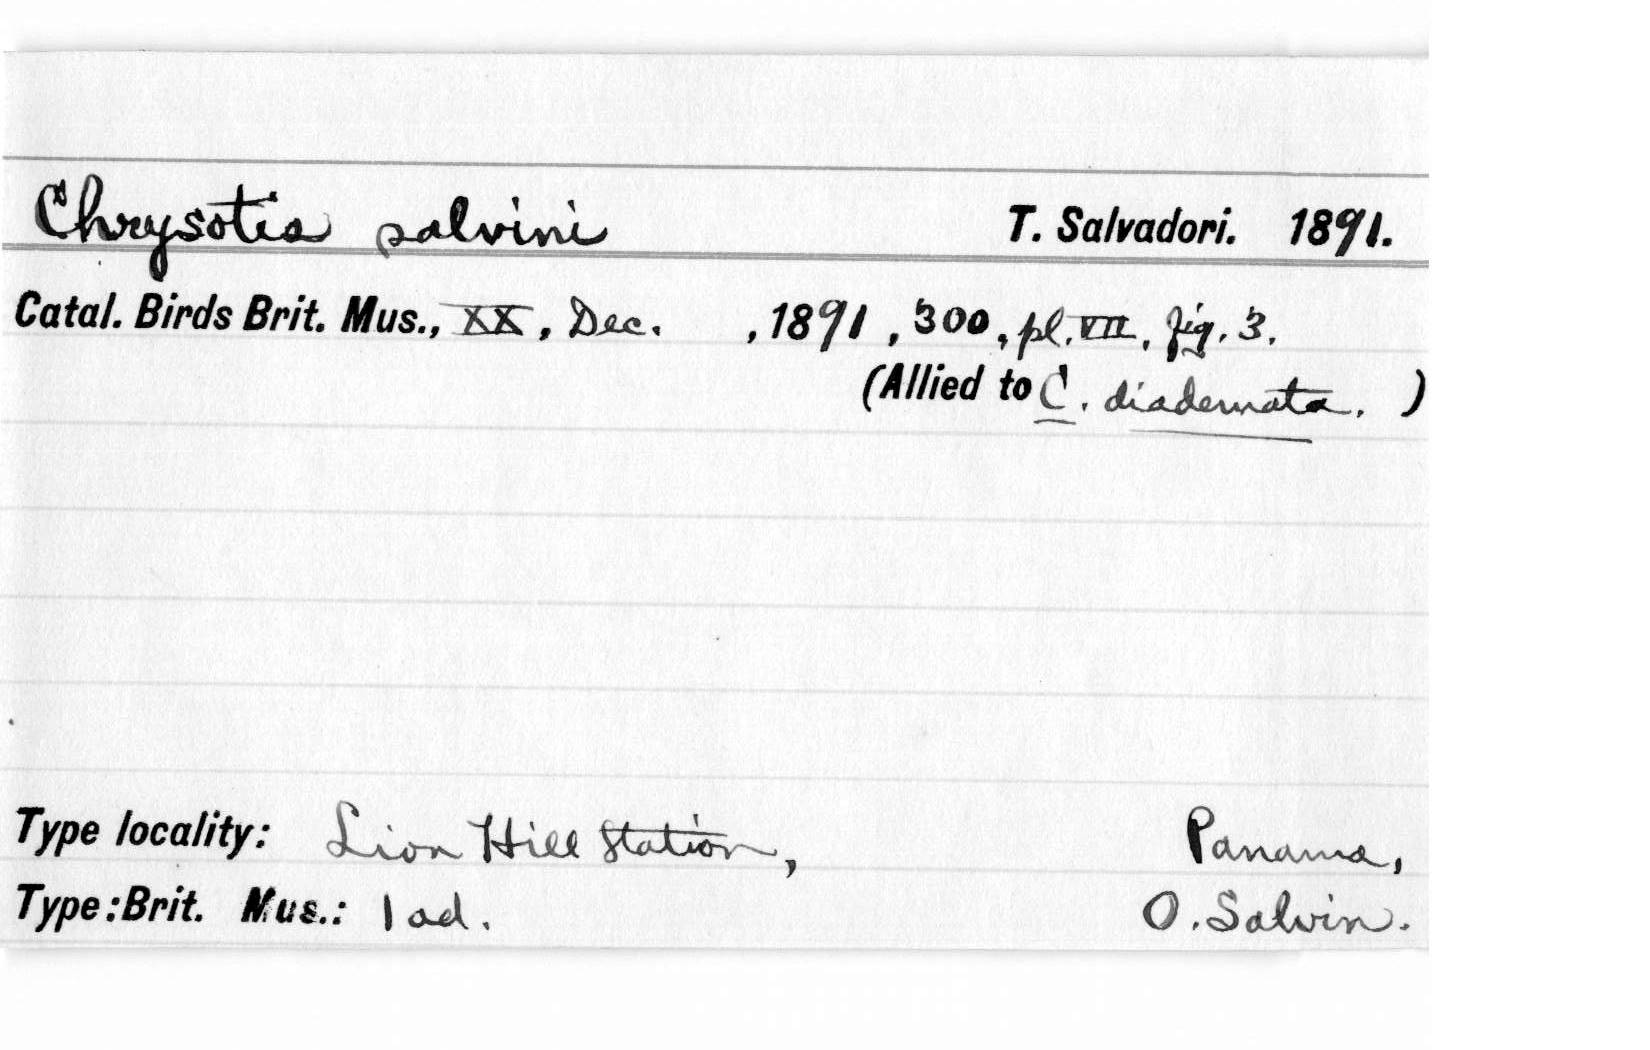 Chrysotis salvini T. Salvadori. 1891.
Catal. Birds Brit. Mus., XX, Dec. ,1891, 300, pl. VII, fig. 3.
(Allied to C. diademata. )
Type locality: Lion Hill Station, Panama,
Type:Brit. Mus.: 1 ad. O. Salvin.